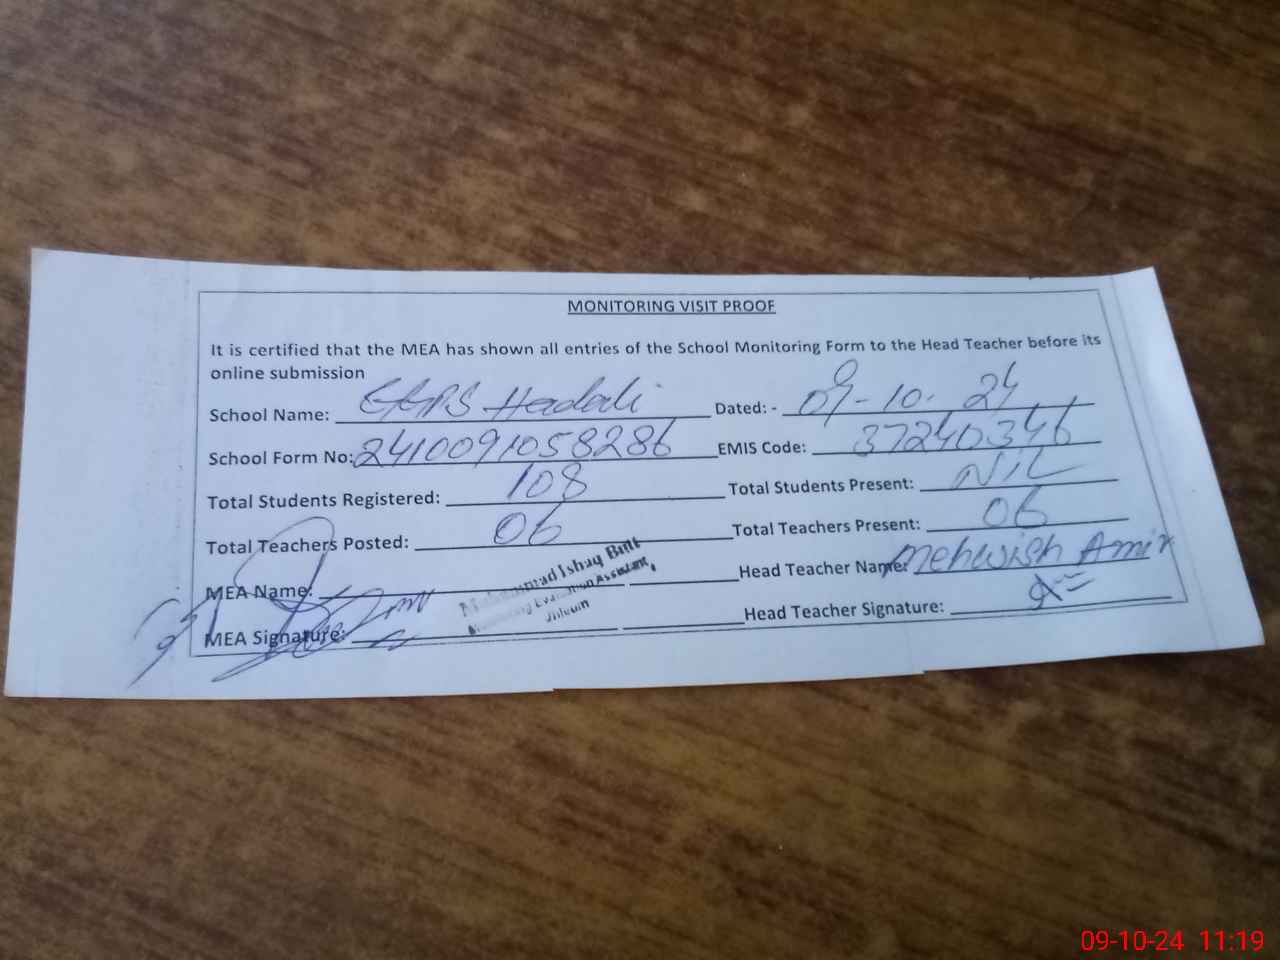 MONITORING VISIT PROOF
It is certified that the MEA has shown all entries of the School Monitoring Form to the Head Teacher before its
online submission
School Name: GGPS Hadali Dated: - 09-10-24
School Form No: 2410091058286 EMIS Code: 37240346
Total Students Registered: 108 Total Students Present: NIL
Total Teachers Posted: 06 Total Teachers Present: 06
MEA Name: Muhammad Ishaq Butt Head Teacher Name: Mehwish Amir
Monitoring Evaluation Assistant,
Jhleum
MEA Signature: Head Teacher Signature:
09-10-24 11:19